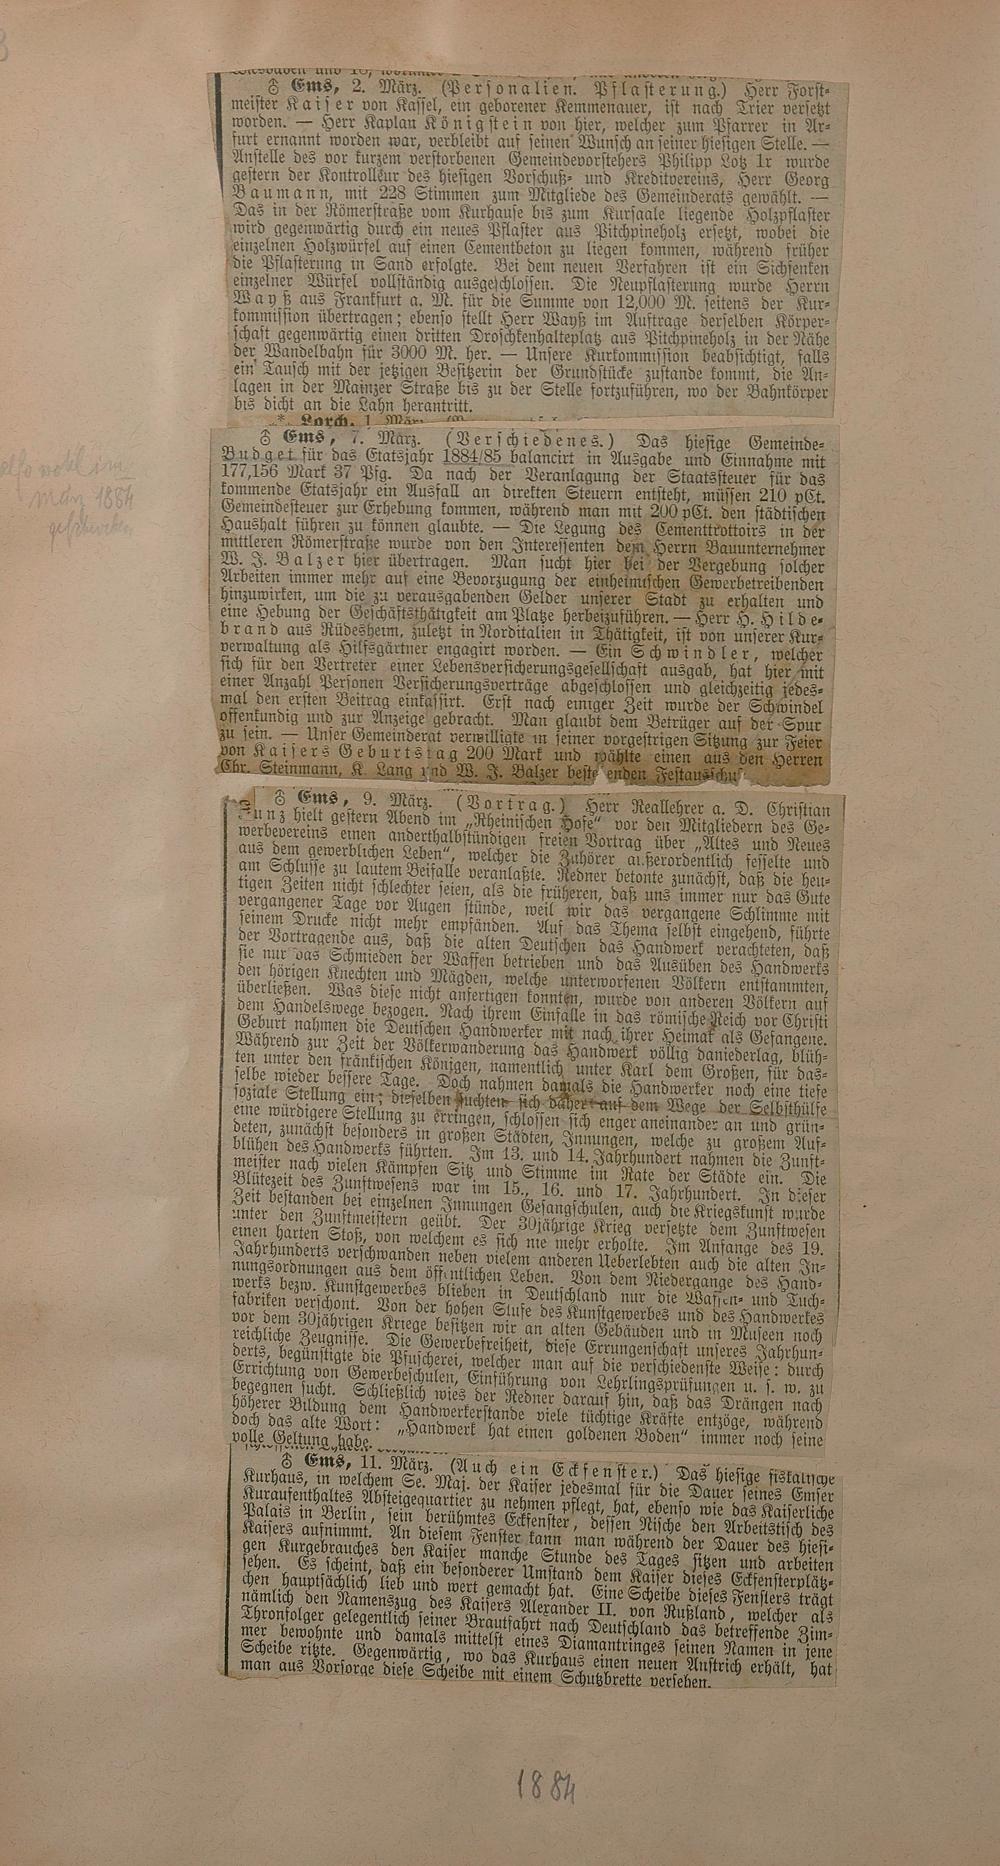 ♁ Ems, 2. März. (Personalien. Pflasterung.) Herr Forst-
meister Kaiser von Kassel, ein geborener Kemmenauer, ist nach Trier versetzt
worden. — Herr Kaplan Königstein von hier, welcher zum Pfarrer in Ar-
furt ernannt worden war, verbleibt auf seinen Wunsch an seiner hiesigen Stelle. —
Anstelle des vor kurzem verstorbenen Gemeindevorstehers Philipp Lotz 1r wurde
gestern der Kontrolleur des hiesigen Vorschuß- und Kreditvereins, Herr Georg
Baumann, mit 228 Stimmen zum Mitgliede des Gemeinderats gewählt. —
Das in der Römerstraße vom Kurhause bis zum Kursaale liegende Holzpflaster
wird gegenwärtig durch ein neues Pflaster aus Pitchpineholz ersetzt, wobei die
einzelnen Holzwürfel auf einen Cementbeton zu liegen kommen, während früher
die Pflasterung in Sand erfolgte. Bei dem neuen Verfahren ist ein Sichsenken
einzelner Würfel vollständig ausgeschlossen. Die Neupflasterung wurde Herrn
Wayß aus Frankfurt a. M. für die Summe von 12,000 M. seitens der Kur-
kommission übertragen; ebenso stellt Herr Wayß im Auftrage derselben Körper-
schaft gegenwärtig einen dritten Droschkenhalteplatz aus Pitchpineholz in der Nähe
der Wandelbahn für 3000 M. her. — Unsere Kurkommission beabsichtigt, falls
ein Tausch mit der jetzigen Besitzerin der Grundstücke zustande kommt, die An-
lagen in der Mainzer Straße bis zu der Stelle fortzuführen, wo der Bahnkörper
bis dicht an die Lahn herantritt.
*⁎* Lorch, 1. März.
♁ Ems, 7. März. (Verschiedenes.) Das hiesige Gemeinde-
Budget für das Etatsjahr 1884/85 balancirt in Ausgabe und Einnahme mit
177,156 Mark 37 Pfg. Da nach der Veranlagung der Staatssteuer für das
kommende Etatsjahr ein Ausfall an direkten Steuern entsteht, müssen 210 pCt.
Gemeindesteuer zur Erhebung kommen, während man mit 200 pCt. den städtischen
Haushalt führen zu können glaubte. — Die Legung des Cementtrottoirs in der
mittleren Römerstraße wurde von den Interessenten dem Herrn Bauunternehmer
W. J. Balzer hier übertragen. Man sucht hier bei der Vergebung solcher
Arbeiten immer mehr auf eine Bevorzugung der einheimischen Gewerbetreibenden
hinzuwirken, um die zu verausgabenden Gelder unserer Stadt zu erhalten und
eine Hebung der Geschäftsthätigkeit am Platze herbeizuführen. — Herr H. Hilde-
brand aus Rüdesheim, zuletzt in Norditalien in Thätigkeit, ist von unserer Kur-
verwaltung als Hilfsgärtner engagirt worden. — Ein Schwindler, welcher
sich für den Vertreter einer Lebensversicherungsgesellschaft ausgab, hat hier mit
einer Anzahl Personen Versicherungsverträge abgeschlossen und gleichzeitig jedes-
mal den ersten Beitrag einkassirt. Erst nach einiger Zeit wurde der Schwindel
offenkundig und zur Anzeige gebracht. Man glaubt dem Betrüger auf der Spur
zu sein. — Unser Gemeinderat verwilligte in seiner vorgestrigen Sitzung zur Feier
von Kaisers Geburtstag 200 Mark und wählte einen aus den Herren
Chr. Steinmann, K. Lang und W. J. Balzer bestehenden Festausschuß.
also wohl im
März 1884
geschrieben
♁ Ems, 9. März. (Vortrag.) Herr Reallehrer a. D. Christian
hielt gestern Abend im „Rheinischen Hofe“ vor den Mitgliedern des Ge-
werbevereins einen anderthalbstündigen freien Vortrag über „Altes und Neues
aus dem gewerblichen Leben“, welcher die Zuhörer außerordentlich fesselte und
am Schlusse zu lautem Beifalle veranlaßte. Redner betonte zunächst, daß die heu-
tigen Zeiten nicht schlechter seien, als die früheren, daß uns immer nur das Gute
vergangener Tage vor Augen stünde, weil wir das vergangene Schlimme mit
seinem Drucke nicht mehr empfänden. Auf das Thema selbst eingehend, führte
der Vortragende aus, daß die alten Deutschen das Handwerk verachteten, daß
sie nur das Schmieden der Waffen betrieben und das Ausüben des Handwerks
den hörigen Knechten und Mägden, welche unterworfenen Völkern entstammten,
überließen. Was diese nicht anfertigen konnten, wurde von anderen Völkern auf
dem Handelswege bezogen. Nach ihrem Einfalle in das römische Reich vor Christi
Geburt nahmen die Deutschen Handwerker mit nach ihrer Heimat als Gefangene.
Während zur Zeit der Völkerwanderung das Handwerk völlig daniederlag, blüh-
ten unter den fränkischen Königen, namentlich unter Karl dem Großen, für das-
selbe wieder bessere Tage. Doch nahmen damals die Handwerker noch eine tiefe
soziale Stellung ein; dieselben suchten sich daher auf dem Wege der Selbsthülfe
eine würdigere Stellung zu erringen, schlossen sich enger aneinander an und grün-
deten, zunächst besonders in großen Städten, Innungen, welche zu großem Auf-
blühen des Handwerks führten. Im 13. und 14. Jahrhundert nahmen die Zunft-
meister nach vielen Kämpfen Sitz und Stimme im Rate der Städte ein. Die
Blütezeit des Zunftwesens war im 15., 16. und 17. Jahrhundert. In dieser
Zeit bestanden bei einzelnen Innungen Gesangschulen, auch die Kriegskunst wurde
unter den Zunftmeistern geübt. Der 30jährige Krieg versetzte dem Zunftwesen
einen harten Stoß, von welchem es sich nie mehr erholte. Im Anfange des 19.
Jahrhunderts verschwanden neben vielem anderen Ueberlebten auch die alten In-
nungsordnungen aus dem öffentlichen Leben. Von dem Niedergange des Hand-
werks bezw. Kunstgewerbes blieben in Deutschland nur die Waffen- und Tuch-
fabriken verschont. Von der hohen Stufe des Kunstgewerbes und des Handwerkes
vor dem 30jährigen Kriege besitzen wir an alten Gebäuden und in Museen noch
reichliche Zeugnisse. Die Gewerbefreiheit, diese Errungenschaft unseres Jahrhun-
derts, begünstigte die Pfuscherei, welcher man auf die verschiedenste Weise: durch
Errichtung von Gewerbeschulen, Einführung von Lehrlingsprüfungen u. s. w. zu
begegnen sucht. Schließlich wies der Redner darauf hin, daß das Drängen nach
höherer Bildung dem Handwerkerstande viele tüchtige Kräfte entzöge, während
doch das alte Wort: „Handwerk hat einen goldenen Boden“ immer noch seine
volle Geltung habe.
♁ Ems, 11. März. (Auch ein Eckfenster.) Das hiesige fiskalische
Kurhaus, in welchem Se. Maj. der Kaiser jedesmal für die Dauer seines Emser
Kuraufenthaltes Absteigequartier zu nehmen pflegt, hat, ebenso wie das Kaiserliche
Palais in Berlin, sein berühmtes Eckfenster, dessen Nische den Arbeitstisch des
Kaisers aufnimmt. An diesem Fenster kann man während der Dauer des hiesi-
gen Kurgebrauches den Kaiser manche Stunde des Tages sitzen und arbeiten
sehen. Es scheint, daß ein besonderer Umstand dem Kaiser dieses Eckfensterplätz-
chen hauptsächlich lieb und wert gemacht hat. Eine Scheibe dieses Fensters trägt
nämlich den Namenszug des Kaisers Alexander II. von Rußland, welcher als
Thronfolger gelegentlich seiner Brautfahrt nach Deutschland das betreffende Zim-
mer bewohnte und damals mittelst eines Diamantringes seinen Namen in jene
Scheibe ritzte. Gegenwärtig, wo das Kurhaus einen neuen Anstrich erhält, hat
man aus Vorsorge diese Scheibe mit einem Schutzbrette versehen.
1884